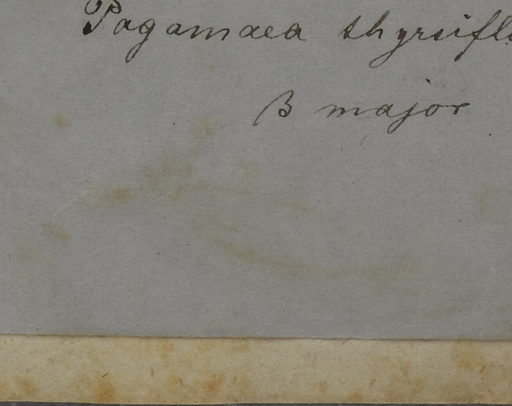 Pagamaea thyrsifl
β major